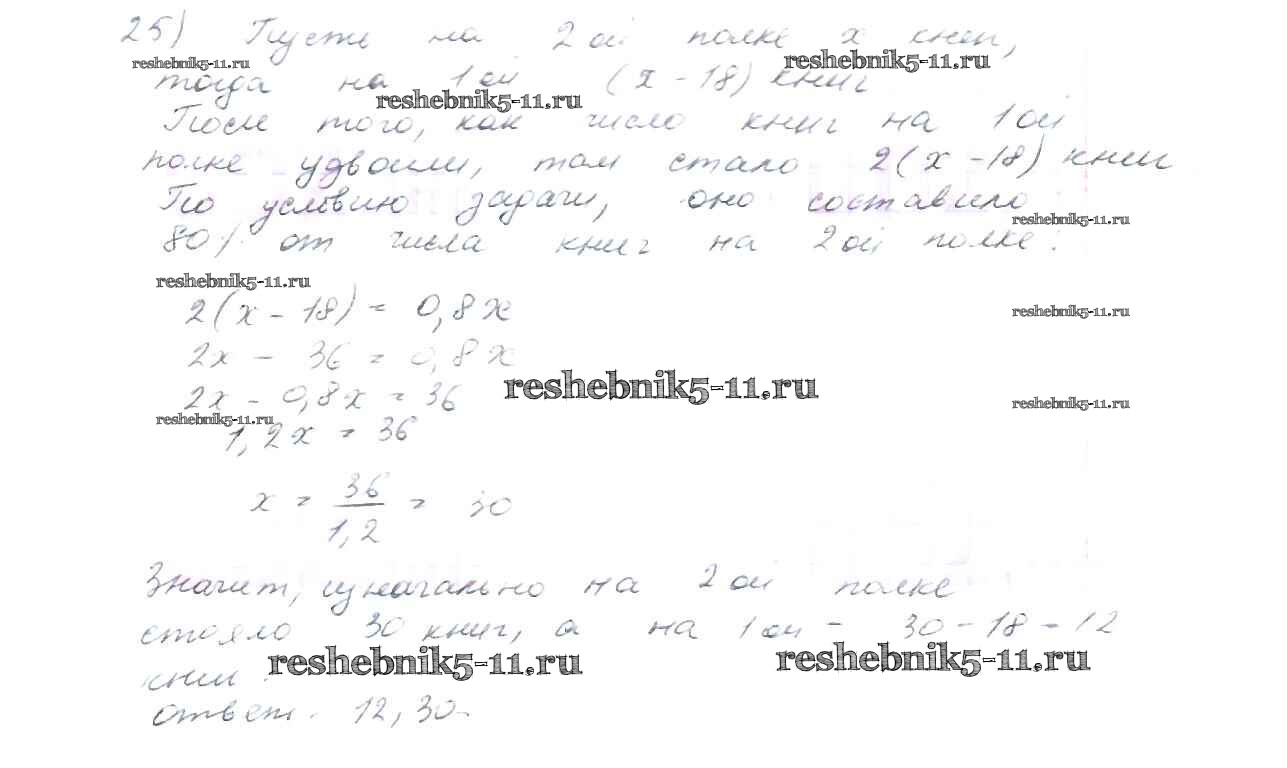 25) Пусть на 2ой полке x книг,
reshebnik5-11.ru
reshebnik5-11.ru
тогда на 1ой (x - 18) книг
reshebnik5-11.ru
После того, как число книг на 1ой
полке удвоили, там стало 2(x - 18) книг
По условию задачи, оно составило
reshebnik5-11.ru
80% от числа книг на 2ой полке:
reshebnik5-11.ru
2(x - 18) = 0,8x
reshebnik5-11.ru
2x - 36 = 0,8x
reshebnik5-11.ru
2x - 0,8x = 36
reshebnik5-11.ru
reshebnik5-11.ru
1,2x = 36
x = 36/1,2 = 30
Значит, изначально на 2ой полке
стояло 30 книг, а на 1ой - 30 - 18 = 12
reshebnik5-11.ru
reshebnik5-11.ru
книг.
Ответ: 12, 30.